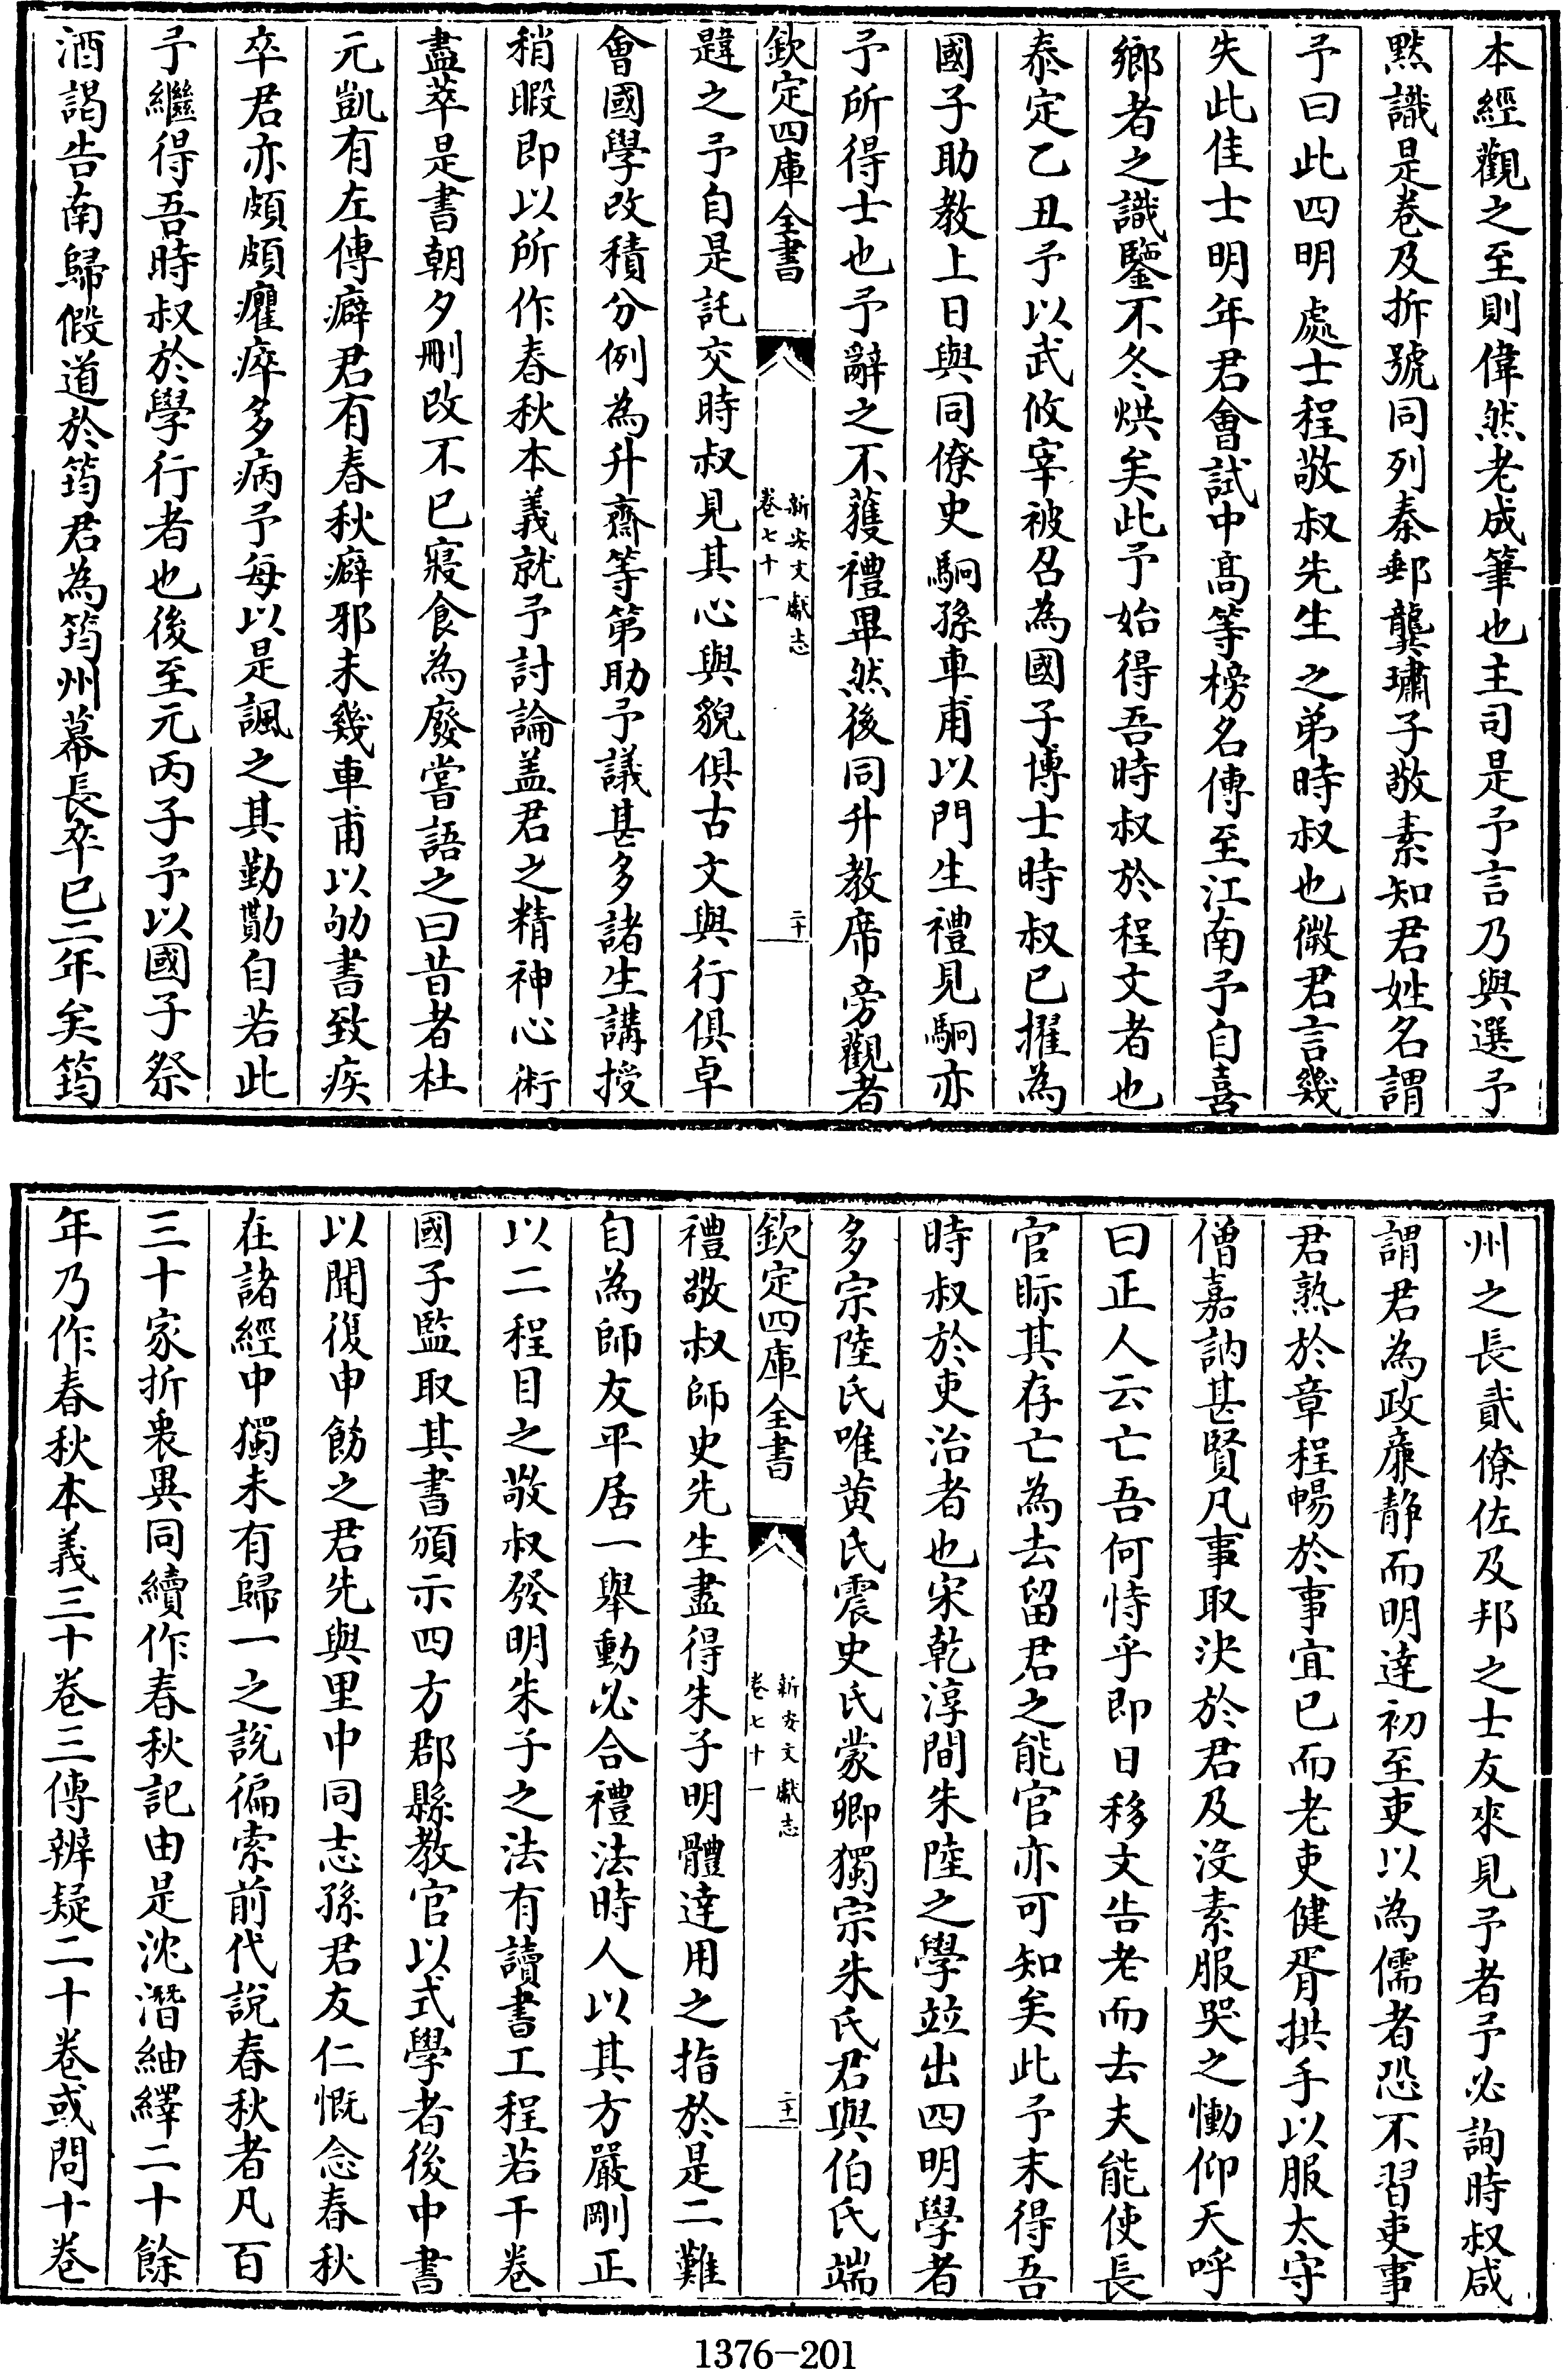 本經觀之至則偉然老成筆也主司是予言乃與選予
㸃識是卷及拆號同列秦郵龔璛子敬素知君姓名謂
予曰此四明處士程敬叔先生之弟時叔也微君言幾
失此佳士明年君會試中髙等榜名傳至江南予自喜
鄉者之識鑒不冬烘矣此予始得吾時叔於程文者也
泰定乙丑予以武攸宰被召為國子博士時叔已擢為
國子助教上日與同僚史駉孫車甫以門生禮見駉亦
予所得士也予辭之不獲禮畢然後同升教席旁觀者
欽定四庫全書
新安文獻志
卷七十一
二十
韙之予自是託交時叔見其心與貌俱古文與行俱卓
會國學改積分例為升齋等第助予議甚多諸生講授
稍暇即以所作春秋本義就予討論盖君之精神心術
盡萃是書朝夕刪改不已寢食為廢嘗語之曰昔者杜
元凱有左傳癖君有春秋癖邪未幾車甫以劬書致疾
卒君亦頗頗癯瘁多病予每以是諷之其勤勩自若此
予繼得吾時叔於學行者也後至元丙子予以國子祭
酒謁告南歸假道於筠君為筠州幕長卒已二年矣筠
州之長貳僚佐及邦之士友來見予者予必詢時叔咸
謂君為政亷静而明達初至吏以為儒者恐不習吏事
君熟於章程暢於事宜已而老吏健胥拱手以服太守
僧嘉訥甚賢凡事取決於君及沒素服哭之慟仰天呼
曰正人云亡吾何恃乎即日移文告老而去夫能使長
官眎其存亡為去留君之能官亦可知矣此予末得吾
時叔於吏治者也宋乾淳間朱陸之學並出四明學者
多宗陸氏唯黄氏震史氏蒙卿獨宗朱氏君與伯氏端
欽定四庫全書
新安文獻志
卷七十一
二十一
禮敬叔師史先生盡得朱子明體達用之指於是二難
自為師友平居一舉動必合禮法時人以其方嚴剛正
以二程目之敬叔發明朱子之法有讀書工程若干卷
國子監取其書頒示四方郡縣教官以式學者後中書
以聞復申飭之君先與里中同志孫君友仁慨念春秋
在諸經中獨未有歸一之說徧索前代說春秋者凡百
三十家折衷異同續作春秋記由是沈潛紬繹二十餘
年乃作春秋本義三十卷三傳辨疑二十卷或問十卷
1376-201